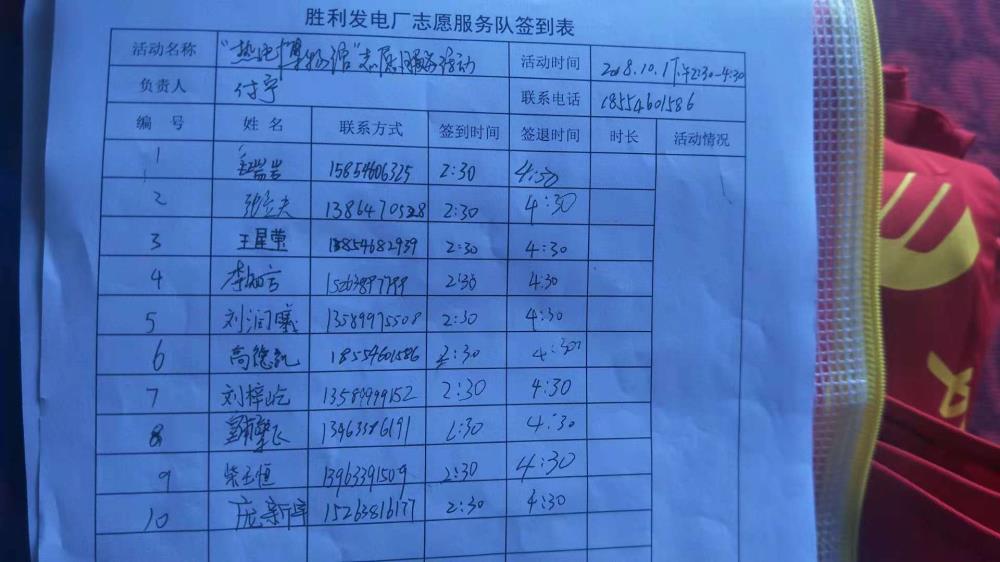 胜利发电厂志愿服务队签到表
活动名称 "热电博物馆"志愿服务活动 活动时间 2018.10.1下午2:30-4:30
负责人 付宇 联系电话 18554601586
编号 姓名 联系方式 签到时间 签退时间 时长 活动情况
1 15854606325 2:30 4:30
2 张立夫 13864705228 2:30 4:30
3 王星萤 18854682939 2:30 4:30
4 李知言 2:30 4:30
5 刘润曦 13589975508 2:30 4:30
6 高德凯 18554601586 2:30 4:30
7 刘梓屹 13589999152 2:30 4:30
8 13463386191 2:30 4:30
9 柴玉恒 13963391509 2:30 4:30
10 庞新宇 15263816177 2:30 4:30